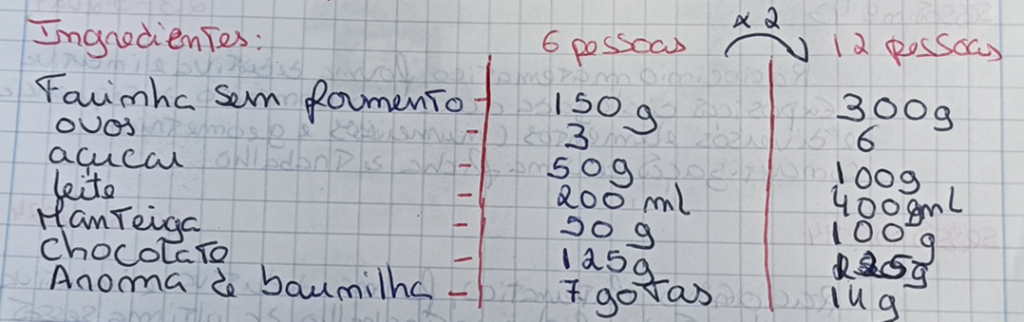 x 2
Ingredientes: 6 pessoas 12 pessoas
Farinha sem fermento - 150 g 300g
ovos - 3 6
açucar - 50g 100g
leite - 200 ml 400 ml
Manteiga - 50 g 100g
chocolate - 125g
Aroma de baunilha - 7 gotas 14 g